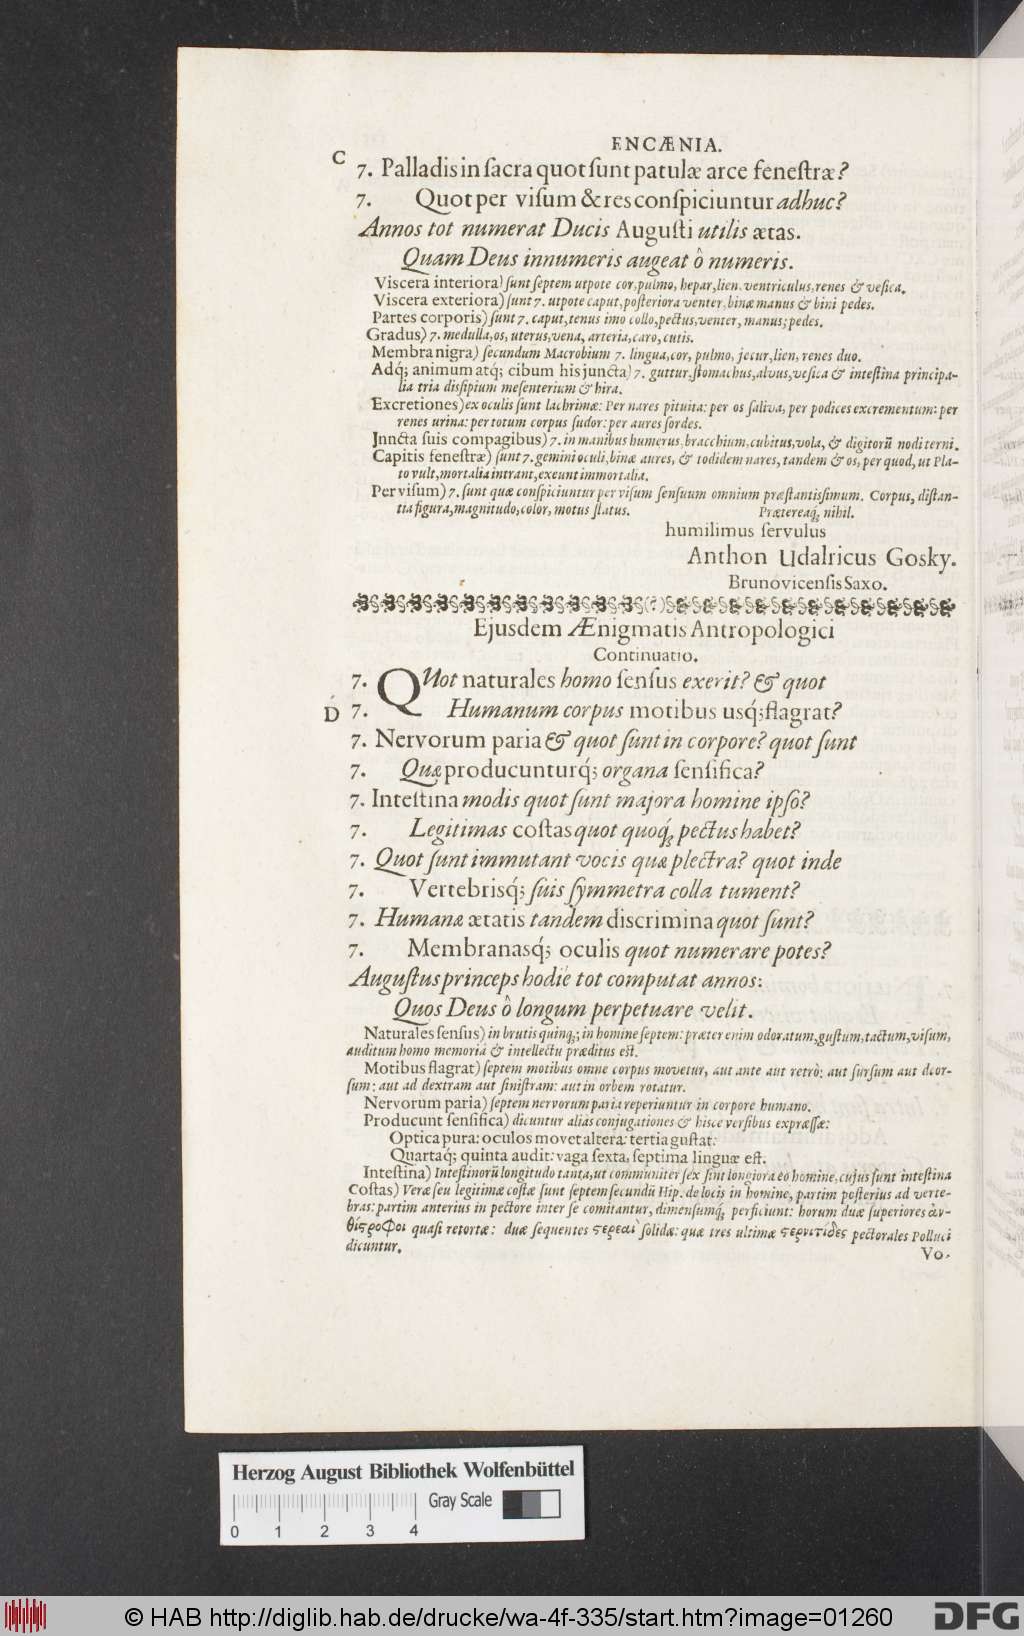 ENCÆNIA.
C
7. Palladis in ſacra quot ſunt patulæ arce feneſtræ?
7. Quot per viſum & res conſpiciuntur adhuc?
Annos tot numerat Ducis Auguſti utilis ætas.
Quam Deus innumeris augeat ô numeris.
Viscera interiora) ſunt ſeptem utpote cor, pulmo, hepar, lien, ventriculus, renes & veſica.
Viscera exteriora) ſunt 7. utpote caput, poſteriora venter, binæ manus & bini pedes.
Partes corporis) ſunt 7. caput, tenus imo collo, pectus, venter, manus; pedes.
Gradus) 7. medulla, os, uterus, vena, arteria, caro, cutis.
Membra nigra) ſecundum Macrobium 7. lingua, cor, pulmo, jecur, lien, renes duo.
Adq́; animum atq́; cibum his juncta) 7. guttur, ſtomachus, alvus, veſica & inteſtina principa-
lia tria diſſipium meſenterium & hira.
Excretiones) ex oculis ſunt lachrimæ: Per nares pituita: per os ſaliva, per podices excrementum: per
renes urina: per totum corpus ſudor: per aures ſordes.
Jnncta ſuis compagibus) 7. in manibus humerus, bracchium, cubitus, vola, & digitorũ nodi terni.
Capitis feneſtræ) ſunt 7. gemini oculi, binæ aures, & todidem nares, tandem & os, per quod, ut Pla-
to vult, mortalia intrant, exeunt immortalia.
Per viſum) 7. ſunt quæ conſpiciuntur per viſum ſenſuum omnium præſtantiſſimum. Corpus, diſtan-
tia figura, magnitudo, color, motus ſtatus. Prætereaq́; nihil.
humilimus ſervulus
Anthon Udalricus Gosky.
Brunovicenſis Saxo.
Ejusdem Ænigmatis Antropologici
Continuatio.
7. QUot naturales homo ſenſus exerit? & quot
D 7. Humanum corpus motibus usq́; flagrat?
7. Nervorum paria & quot ſunt in corpore? quot ſunt
7. Quæ producunturq́; organa ſenſifica?
7. Inteſtina modis quot ſunt majora homine ipſo?
7. Legitimas coſtas quot quoq́; pectus habet?
7. Quot ſunt immutant vocis quæ plectra? quot inde
7. Vertebrisq́; ſuis ſymmetra colla tument?
7. Humanæ ætatis tandem discrimina quot ſunt?
7. Membranasq́; oculis quot numerare potes?
Auguſtus princeps hodiè tot computat annos:
Quos Deus ô longum perpetuare velit.
Naturales ſenſus) in brutis quinq́;; in homine ſeptem: præter enim odoratum, guſtum, tactum, viſum,
auditum homo memoriâ & intellectu præditus eſt.
Motibus flagrat) ſeptem motibus omne corpus movetur, aut ante aut retrò: aut ſurſum aut deor-
ſum: aut ad dextram aut ſiniſtram: aut in orbem rotatur.
Nervorum paria) ſeptem nervorum paria reperiuntur in corpore humano.
Producunt ſenſifica) dicuntur alias conjugationes & hisce verſibus expræſſæ:
Optica pura: oculos movet altera: tertia guſtat:
Quartaq́; quinta audit: vaga ſexta, ſeptima linguæ eſt.
Inteſtina) Inteſtinorũ longitudo tanta, ut communiter ſex ſint longiora eo homine, cujus ſunt inteſtina
Coſtas) Veræ ſeu legitimæ coſtæ ſunt ſeptem ſecundũ Hip. de locis in homine, partim poſterius ad verte-
bras: partim anterius in pectore inter ſe comitantur, dimenſumq́; perficiunt: horum duæ ſuperiores ἀν-
θίςροφοι quaſi retortæ: duæ ſequentes ςερεαὶ ſolidæ: quæ tres ultimæ ςερνιτίδες pectorales Polluci
dicuntur.
Vo-
Herzog August Bibliothek Wolfenbüttel
Gray Scale
0 1 2 3 4
© HAB http://diglib.hab.de/drucke/wa-4f-335/start.htm?image=01260
DFG